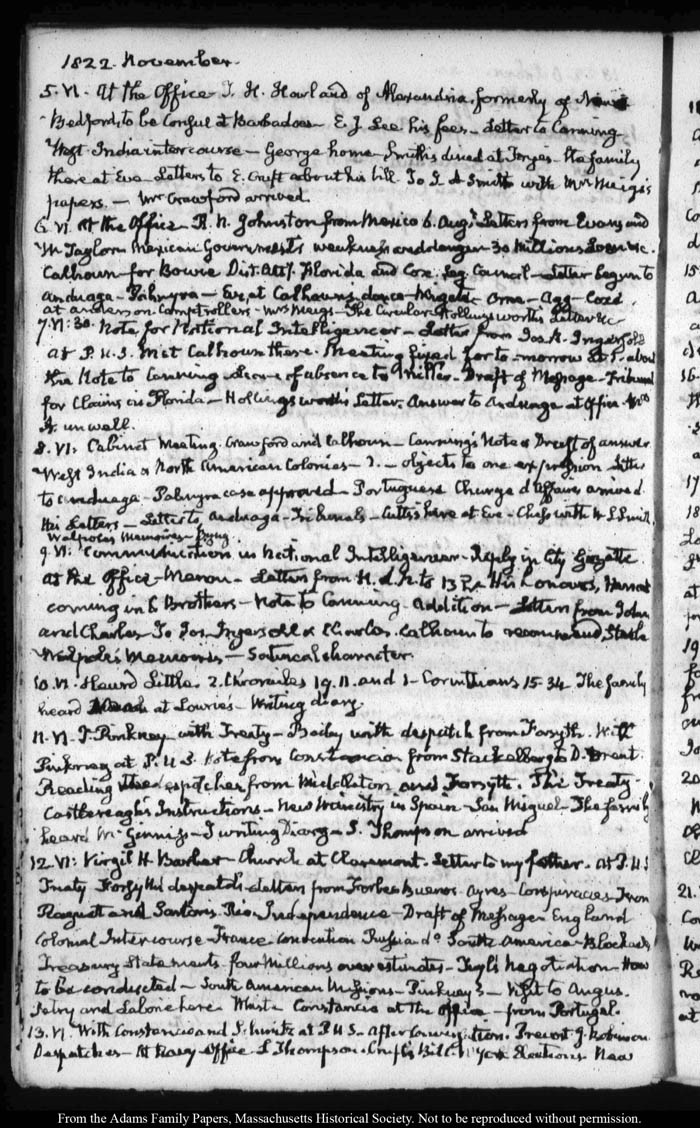 1822. November.
5. VI. At the Office J. H. Howland of Alexandria, formerly of New
Bedford, to be Consul at Barbadoes — E. J. Lee his fees — Letter to Canning
West India intercourse — George home — Smiths dined at Frye's — the family
there at Eve — Letters to E. Cruft about his bill. To J. A. Smith with Mrs Meigs's
papers. — Mr Crawford arrived.
6. VI. At the Office — R. N. Johnston from Mexico 6. Aug. Letters from Evans and
W Taylor Mexican Government's weakness and danger 30 Millions Loan &c.
Calhoun for Bowie Dist: Atty. Florida and Coxe Leg. Council — Letter begun to
Anduaga — Palmyra — Eve, at Calhoun's dance —
at Anderson Comptroller's — Mrs Meigs — The Circular, Hollingsworth's Letter &c
7. VI: 30. Note, for National Intelligencer — Letter from Jos. R. Ingersoll
at P. U. S. Met Calhoun there. Meeting fixed for to-morrow at 1. about
the Note to Canning — Leave of absence to Miller — Draft of Message — Tribunal
for Claims in Florida — Hollingsworth's Letter. Answer to Anduaga at Office. Mrs
A. unwell.
8. VI: Cabinet Meeting. Crawford and Calhoun — Canning's Note & Draft of answer
West India & North American Colonies — I. — objects to one expression Letter
to Anduaga — Palmyra case approved — Portuguese Charge d'Affaires arrived.
His Letters — Letter to Anduaga — Tribunals — Cutts's here at Eve — Chess with W S Smith.
Walpole's Memoires —
9. VI: Communication in National Intelligencer — Reply in City Gazette
At the Office — Letters from H. d. N. to
coming in & Brothers — Note to Canning. Addition — Letters from John
and Charles — To Jos. Ingersoll & Charles. Calhoun to recommend
Walpole's Memoirs — Satirical character.
10. VI. Heard Little. 2. Chronicles 19. 11. and 1. Corinthians 15. 34. The family
heard at Lowrie's — Writing diary.
11. VI. J. Pinkney with Treaty — Bailey with despatch from Forsyth. With
Pinkney at P. U. S. Note from Constancio from Stackelberg to D. Brent.
Reading the despatches from Middleton and Forsyth. The Treaty
Castlereagh's Instructions — New Ministry in Spain — San Miguel — The family
heard Mr Jennings — I writing Diary — S. Thompson arrived
12. VI: Virgil H. Barber — Church at Claremont. Letter to my father. At P. U. S
Treaty Forsyth's despatch — Letters from Forbes Buenos Ayres — Conspiracies, From
Raguet and Sartoris Rio. Independence — Draft of Message — England
Colonial Intercourse — France Convention Russia do South America — Blockades
Treasury Statements four Millions over estimates — Negotiation — How
to be conducted — South American Missions — Pinkney's — Visit to Angus.
Petry and Laborie here. Constancio at the office — from Portugal.
13. VI. With Constancio and at P U S — After Conversation. Prevost J. Robinson
Despatches — At Navy Office S Thompson. Cruft's Bill. N. York Elections. New